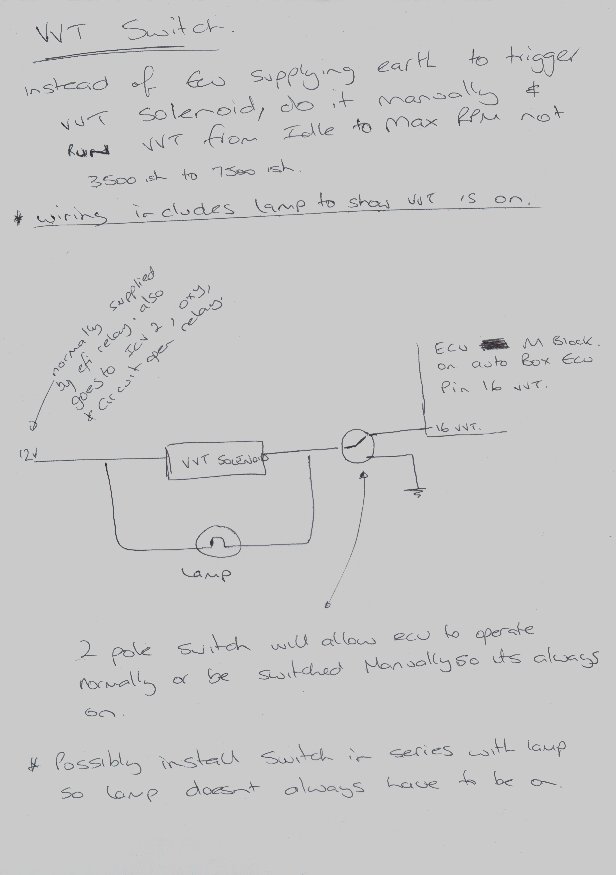 VVT Switch.
instead of Ecu supplying earth to trigger
VVT solenoid, do it manually &
Run VVT from Idle to Max RPM not
3500 ish to 7500 ish.
* wiring includes lamp to show VVT is on.
normally supplied
by efi relay. also
goes to Icv 2, oxy,
* Circuit open relay.
ECU M Block.
on auto Box Ecu
Pin 16 VVT.
16 VVT.
12V
VVT SOLENOID
Lamp
2 pole switch will allow ecu to operate
normally or be switched Manually so its always
on.
* Possibly install switch in series with lamp
so lamp doesnt always have to be on.